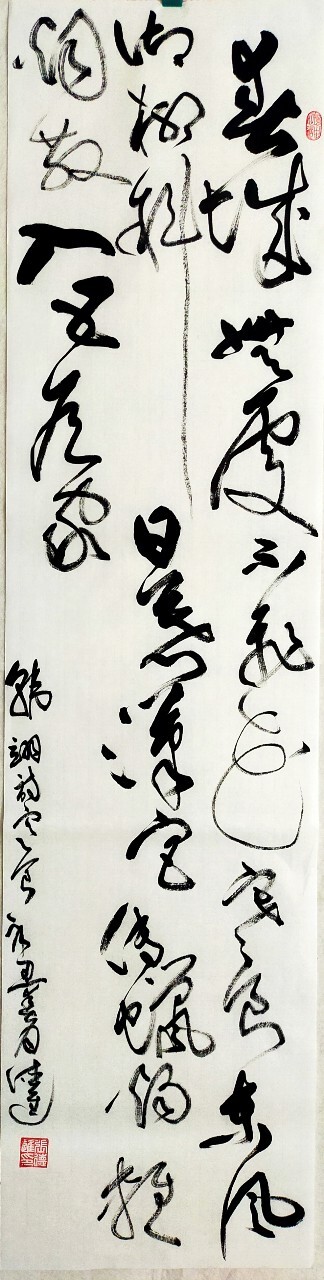 春城無处不飛花寒食東風
御柳斜日暮漢宮傳蠟燭輕
烟散入五侯家
韓翃詩寒食 辛丑春月